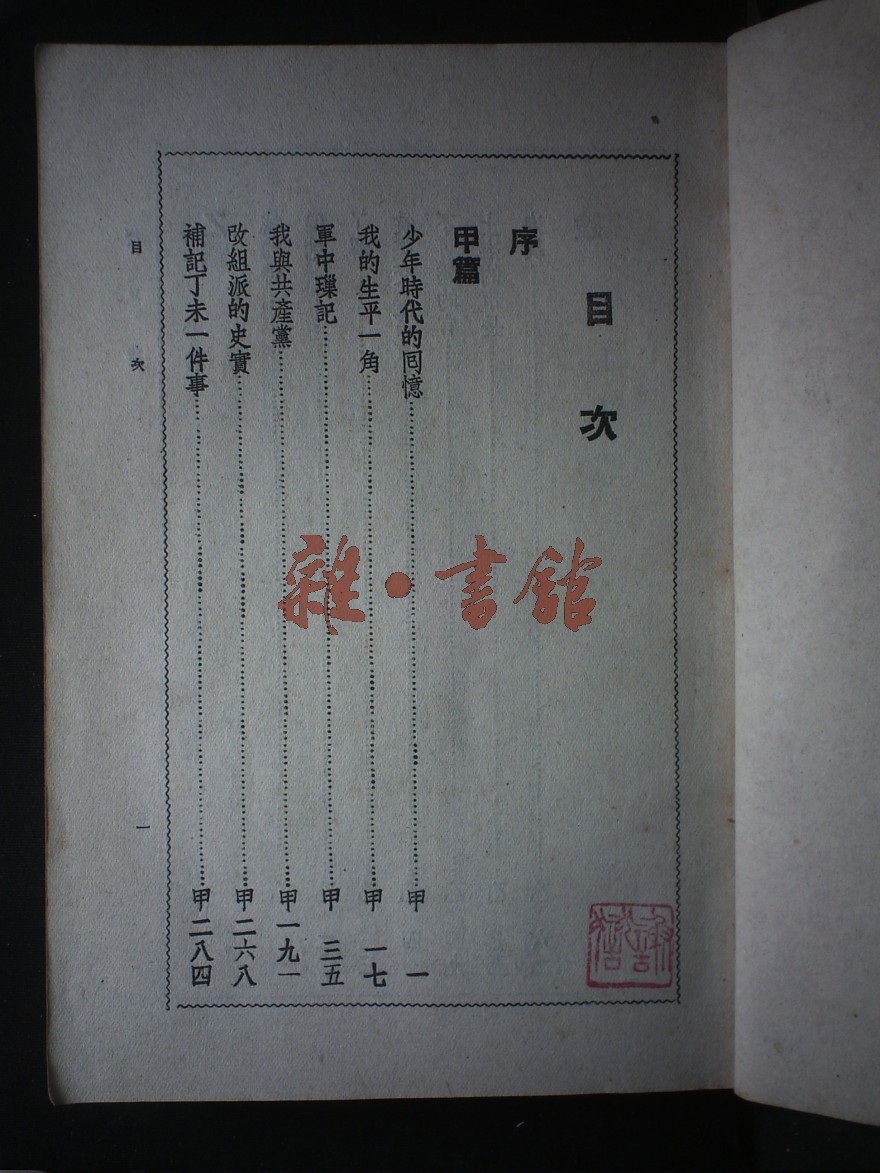 目次
序
甲篇
少年時代的回憶……甲 一
我的生平一角……甲 一七
軍中璅記……甲 三五
我與共產黨……甲一九一
改組派的史實……甲二六八
補記丁未一件事……甲二八四
目 次 一
雜·書館